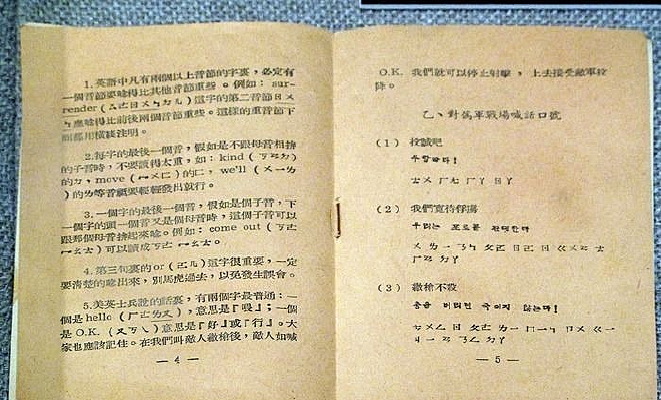 1.英語中凡有兩個以上音節的字裏，必定有
一個音節要唸得比其他音節重些。例如：sur-
render（ㄙㄜㄖㄨㄣㄉㄦ）這字的第二音節ㄖㄨ
ㄣ應唸得比前後兩個音節重些。這樣的重音節下
面都用橫線注明。
2.每字的最後一個音，假如是不跟母音相拚
的子音時，不要讀得太重，如：kind（ㄎㄞㄉ）
的ㄉ，move（ㄇㄨㄈ）的ㄈ，we'll（ㄨㄧㄌ
）的ㄌ等音祇要輕輕發出就行。
3.一個字的最後一個音，假如是個子音，下
一個字的頭一個音又是個母音時，這個子音可以
跟那個母音拚起來唸。例如：come out（ㄎㄜ
ㄇㄠㄊ）可以讀成ㄎㄜㄇㄠㄊ。
4.第三句裏的or（ㄛㄦ）這字很重要，一定
要清楚的唸出來，別馬虎過去，以免發生誤會。
5.美英士兵說的話裏，有兩個字最普通：一
個是hello（ㄏㄜㄌㄡ），意思是『喂』；一個
是O.K.（ㄡㄎㄟ）意思是『好』或『行』。大
家也應該記住。在我們叫敵人繳槍後，敵人如喊
— 4 —
O.K. 我們就可以停止射擊，上去接受敵軍投
降。
乙、對偽軍戰場喊話口號
（1） 投誠吧
ㄊㄨ ㄏㄤ ㄏㄚ ㄖㄚ
（2） 我們寬待俘虜
우리는 포로를 관대한다
（3） 繳槍不殺
총을 버리면 죽이지 않는다!
— 5 —